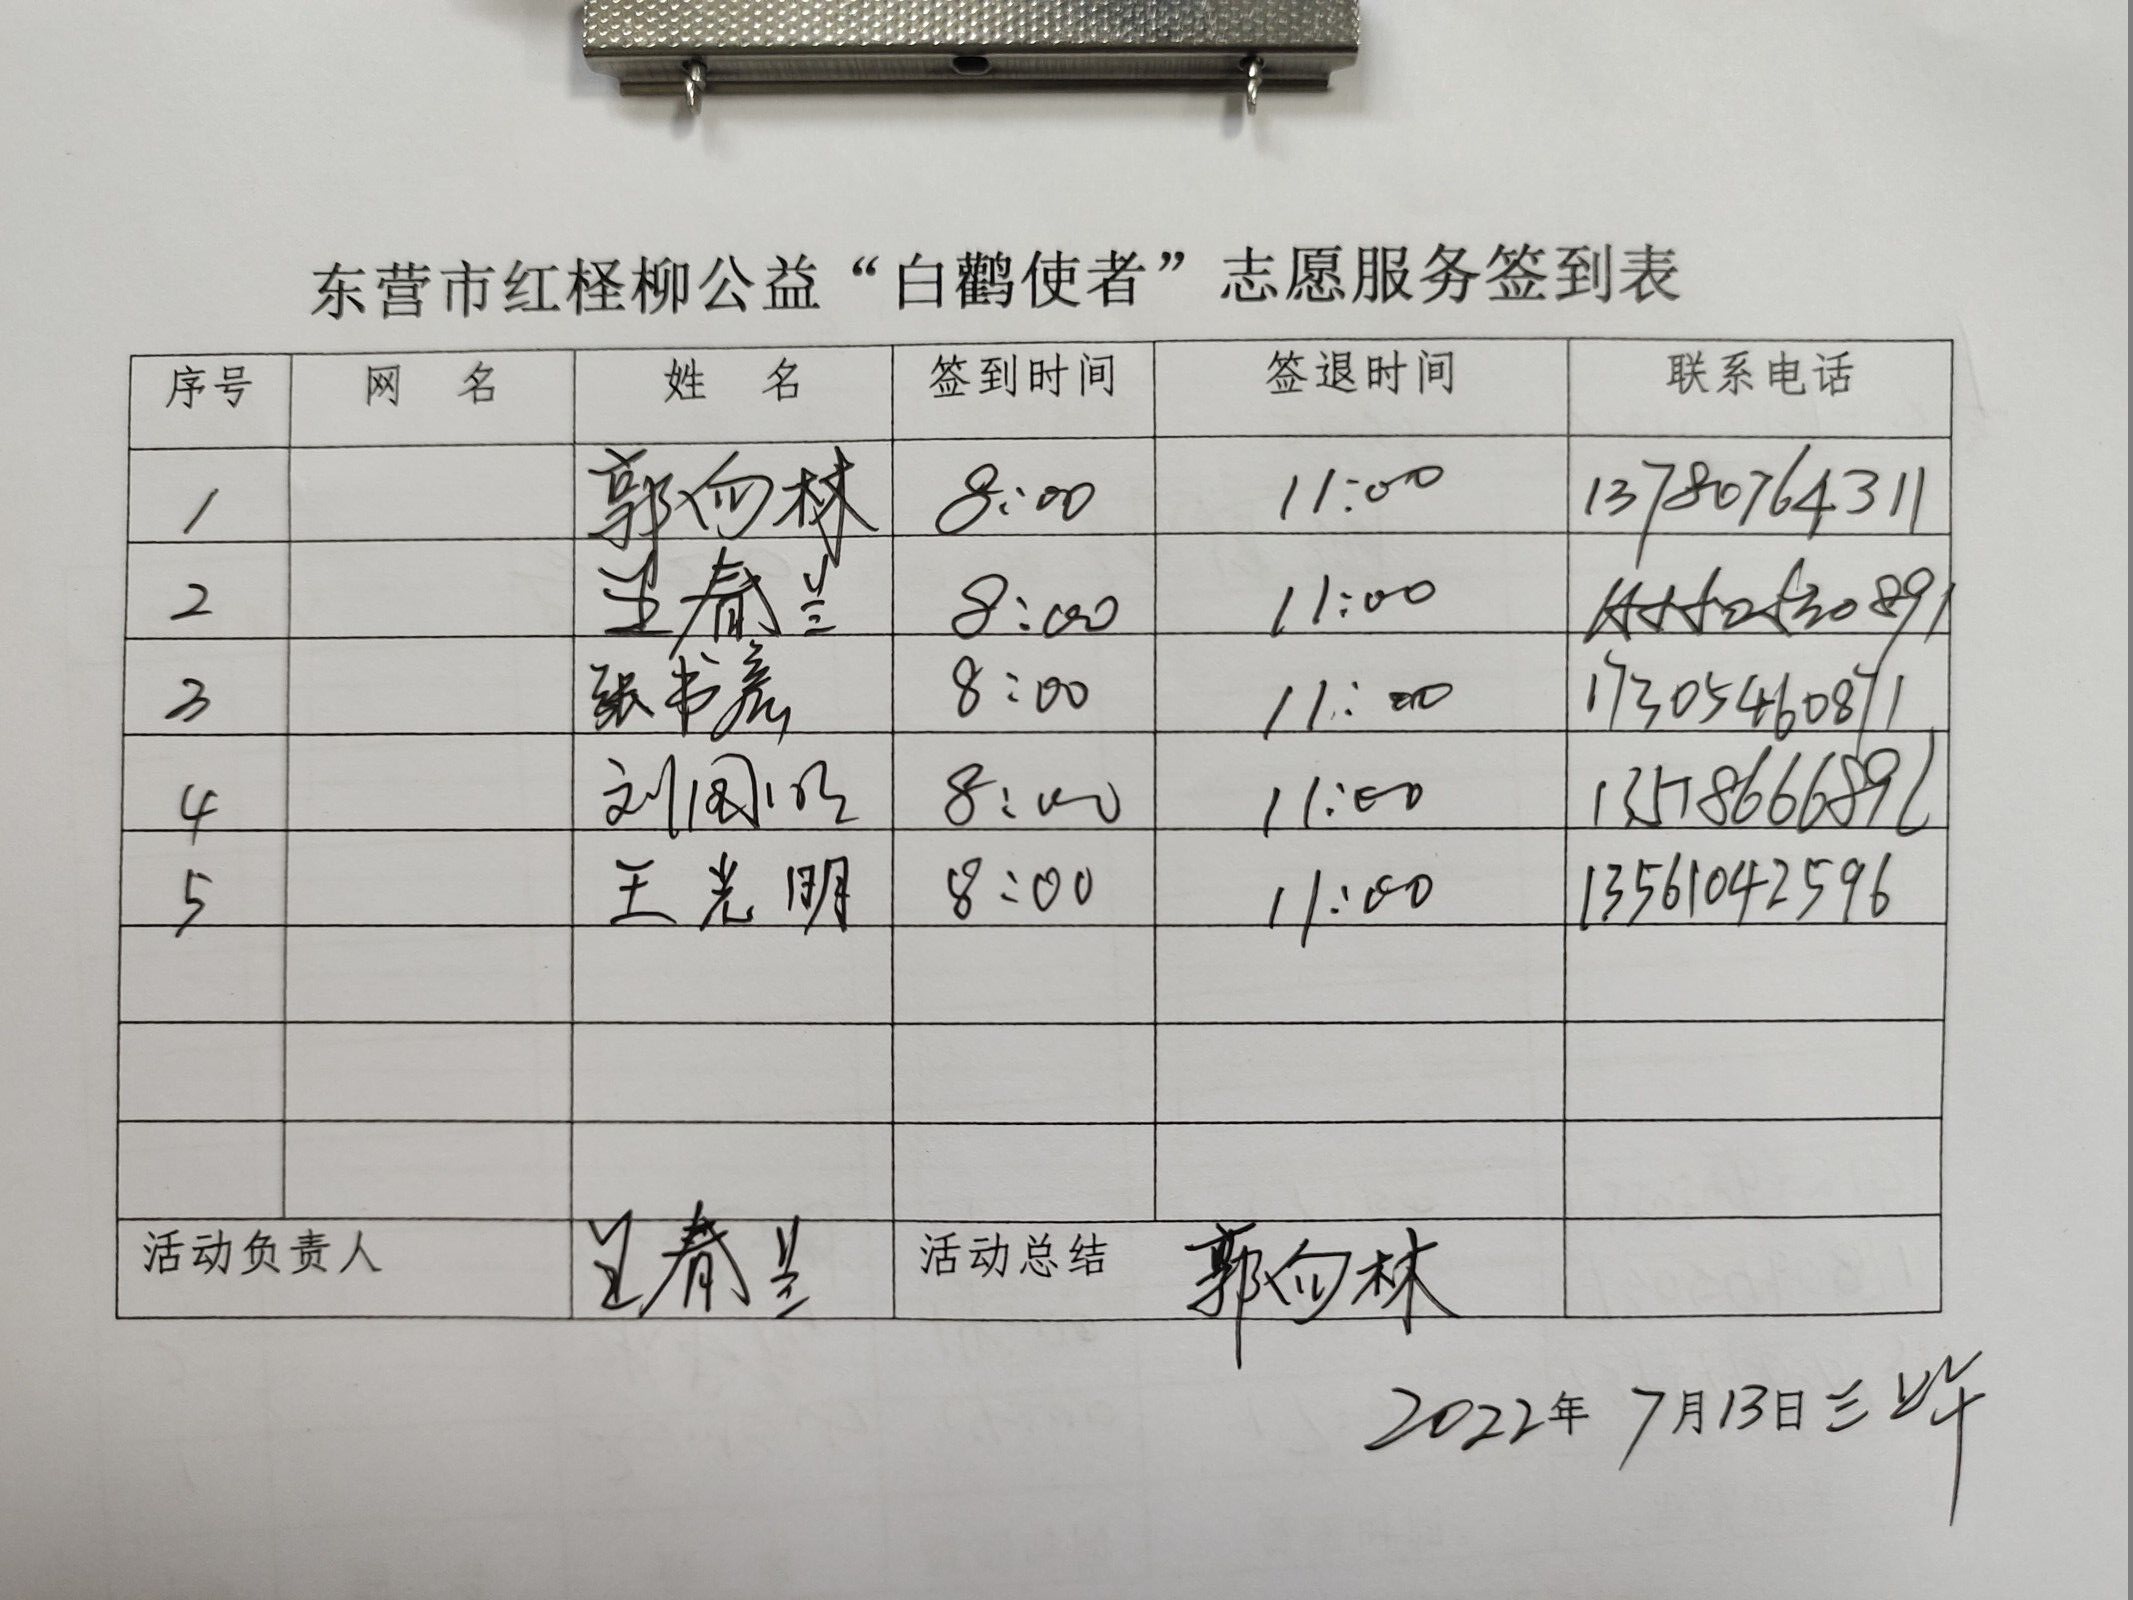 东营市红柽柳公益“白鹳使者”志愿服务签到表
序号 网 名 姓 名 签到时间 签退时间 联系电话
1 郭向林 8:00 11:00 13780764311
2 王春兰 8:00 11:00
3 张书彦 8:00 11:00 17305460871
4 刘国 8:00 11:00
5 王光明 8:00 11:00 13561042596
活动负责人 王春兰 活动总结 郭向林
2022年 7月13日 三 上午